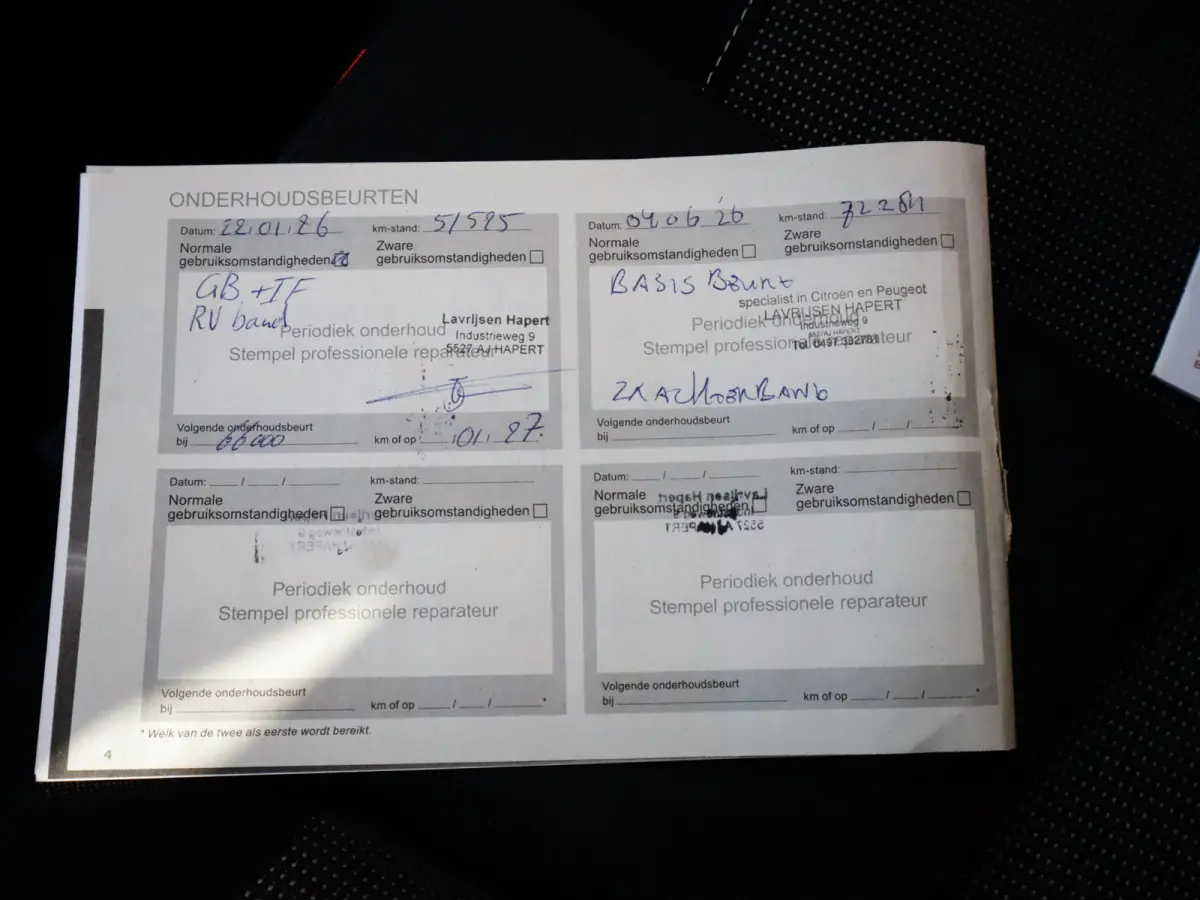 ONDERHOUDSBEURTEN
Datum: 22.01.26 km-stand: 51595
Normale gebruiksomstandigheden
Zware gebruiksomstandigheden
GB + IF
RV band
Periodiek onderhoud
Stempel professionele reparateur
Lavrijsen Hapert
Industrieweg 9
5527 AJ HAPERT
Volgende onderhoudsbeurt
bij 66000 km of op 01.27.
Datum: 04.06.26 km-stand: 72284
Normale gebruiksomstandigheden
Zware gebruiksomstandigheden
BASIS BEURT
specialist in Citroën en Peugeot
LAVRIJSEN HAPERT
Periodiek onderhoud
Industrieweg 9
5527AJ HAPERT
Stempel professionele reparateur
Tel. 0497
2X ACHTERBAND
Volgende onderhoudsbeurt
bij km of op / /
Datum: / / km-stand:
Normale gebruiksomstandigheden
Zware gebruiksomstandigheden
Periodiek onderhoud
Stempel professionele reparateur
Volgende onderhoudsbeurt
bij km of op / / *
Datum: / / km-stand:
Normale gebruiksomstandigheden
Zware gebruiksomstandigheden
Lavrijsen Hapert
5527 AJ HAPERT
Periodiek onderhoud
Stempel professionele reparateur
Volgende onderhoudsbeurt
bij km of op / / *
* Welk van de twee als eerste wordt bereikt.
4